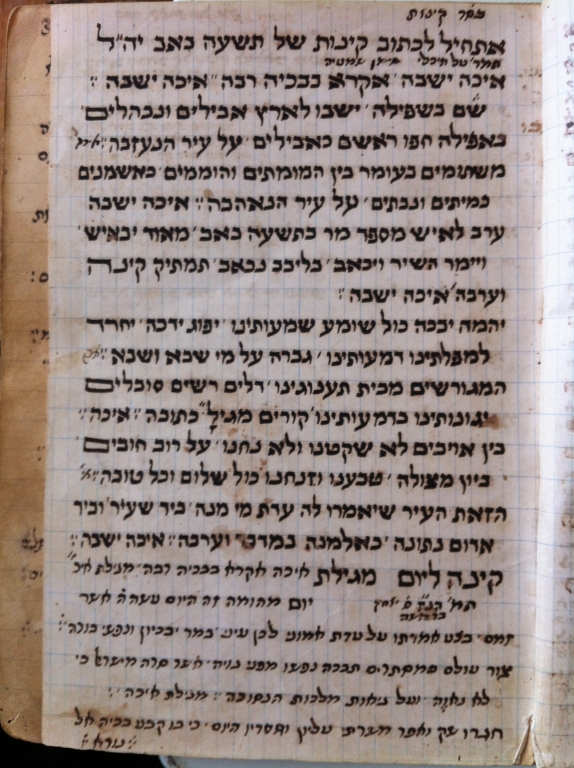 ספר קינות
אתחיל לכתוב קינות של תשעה באב יה״ל
איכה ישבה׳ אקרא בבכיה רבה׳׳ איכה ישבה׃
שם בשפילה׳ ישבו לארץ אבילים ונבהלים
באפילה חפו ראשם כאבילים׳ על עיר הנעזבה׃
משתוממים בעומר בין המומתים והוממים׳ כאשמנים
כמיתים ונכתים׳ על עיר הנאהבה׃ איכה ישבה
ערב לאיש מספד מר בתשעה באב׳ מאוד יבאיש׳
ויימר השיר ויכאב׳ בליבב נכאב׳ תמתיק קינה
וערבה׳ איכה ישבה׃
יהמה יבכה כול שומע שמעותינו׳ יפוג ידכה׳ יחרד
למפלתינו דמעותינו׳ גברה על מי שבא ושבא׃
המגורשים מבית תענוגינו׳ דלים רשים סובלים
יגונותינו בדמעותינו׳ קורים מגילת כתובה׃ איכה׃
בין אויבים לא שקטנו ולא נחנו׳ על רוב חובים׳
ביין מצולה׳ טבענו וזנחנו כול שלום וכל טובה׃
הזאת העיר שיאמרו לה עדת מי מנה׳ ביד שעיר׳ וביד
אדום נתונה׳ כאלמנה במדבר וערבה׃ איכה ישבה׃
קינה ליום מגילת איכה אקרא בבכיה רבה׳ מגילת איכ׳
יום מהומה זה היום עשה ה׳ אשר
זמם׳ בצע אמרתו על עדת אמוני לכן עיני כמר יבכיון ונפשי
צור עולם במסתרים תבכה נפשו מפני גויה׳ אשר סרה מישראל כי
לא נאוה׳ ועל גיאות מלכות הנסובה׃ מגילת איכה׃
חגרו שק ואפר חברתי עליון וחסדיו היום׳ כי בו קבע בכיה אל
נורא׃